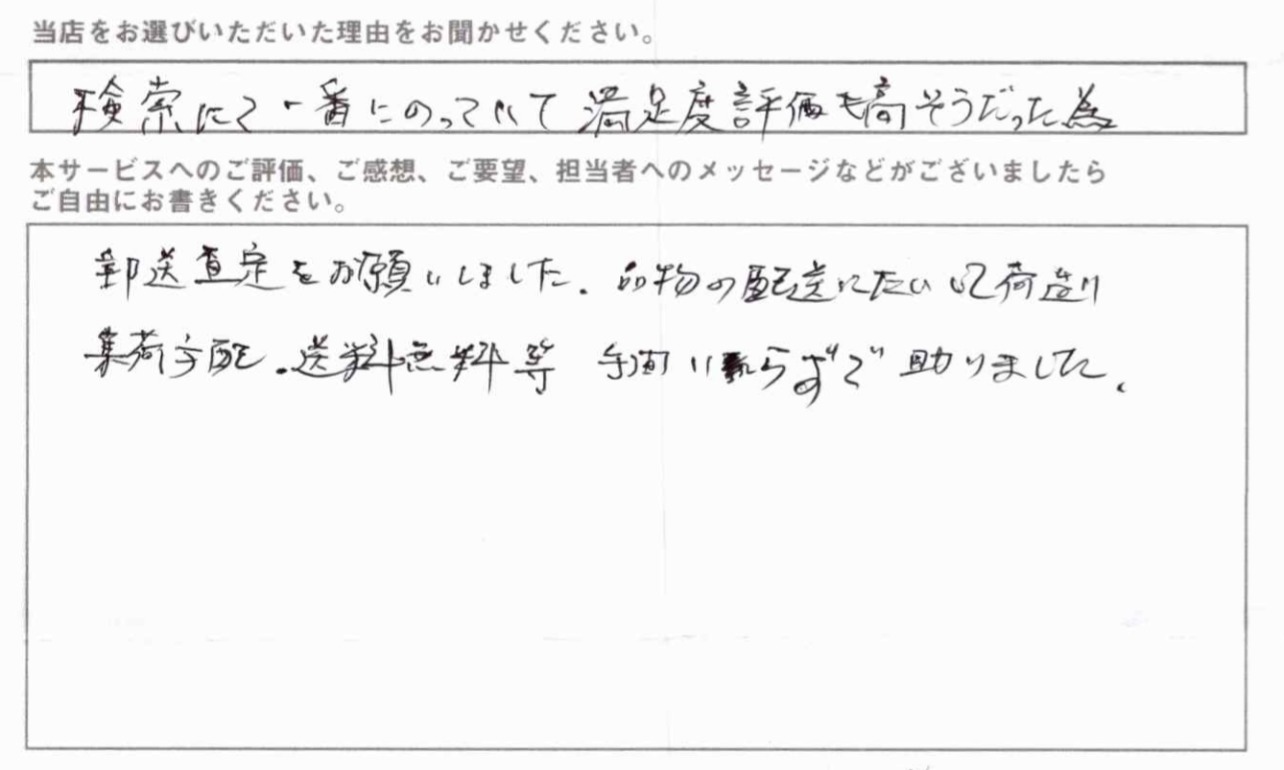 当店をお選びいただいた理由をお聞かせください。
検索にて一番にのっていて満足度評価も高そうだった為
本サービスへのご評価、ご感想、ご要望、担当者へのメッセージなどがございましたら
ご自由にお書きください。
郵送査定をお願いしました。品物の配送にたいして荷造り
集荷手配、送料無料等 手間いらずで助りました。